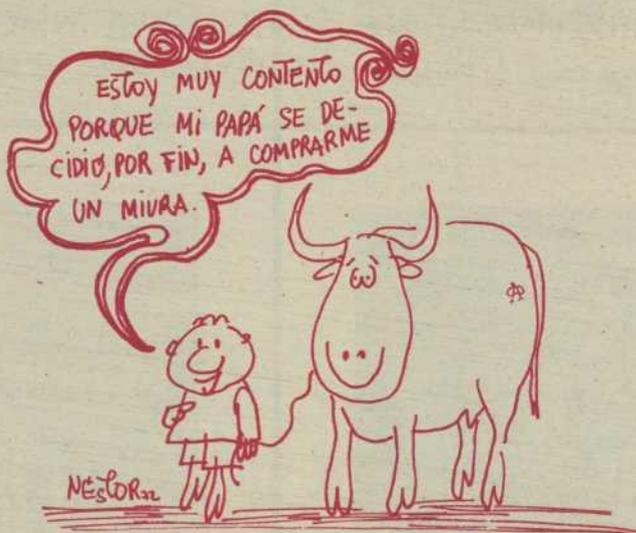 ESTOY MUY CONTENTO
PORQUE Mi PAPÁ SE DE-
CIDIÓ, POR FIN, A COMPRARME
UN MIURA.
NÉSTOR 72